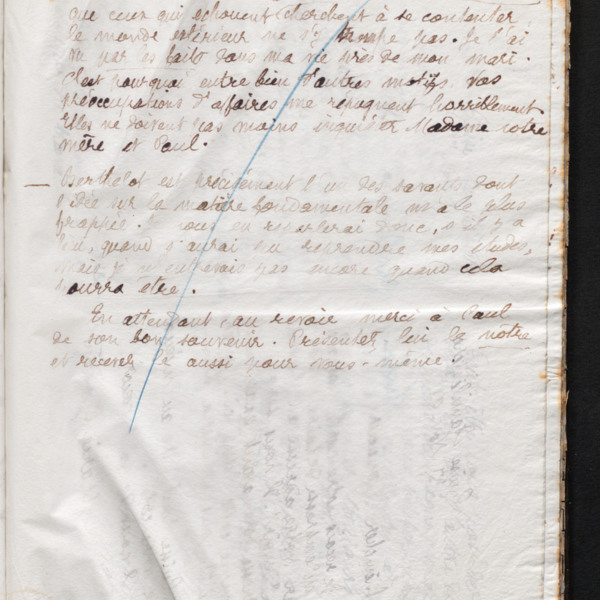 que ceux qui échouent cherchent à se contenter
le monde extérieur ne s'y pas. Je l'ai
vu par les faits dans ma vie près de mon mari.
C'est pourquoi entre bien d'autres motifs, vos
préoccupations d'affaires me répugnent horriblement
Elles ne doivent pas moins inquiéter Madame votre
mère et Paul.
— Berthelot est précisément l'un des savants dont
l'idée sur la matière fondamentale m'a le plus
frappée. Nous en reparlerai donc, s'il y a
lieu, quand j'aurai pu reprendre mes études,
mais je n'entrevois pas encore quand cela
pourra être.
En attendant, au revoir merci à Paul
de son bon souvenir. Présentez lui la nôtre
et recevez le aussi pour vous-même